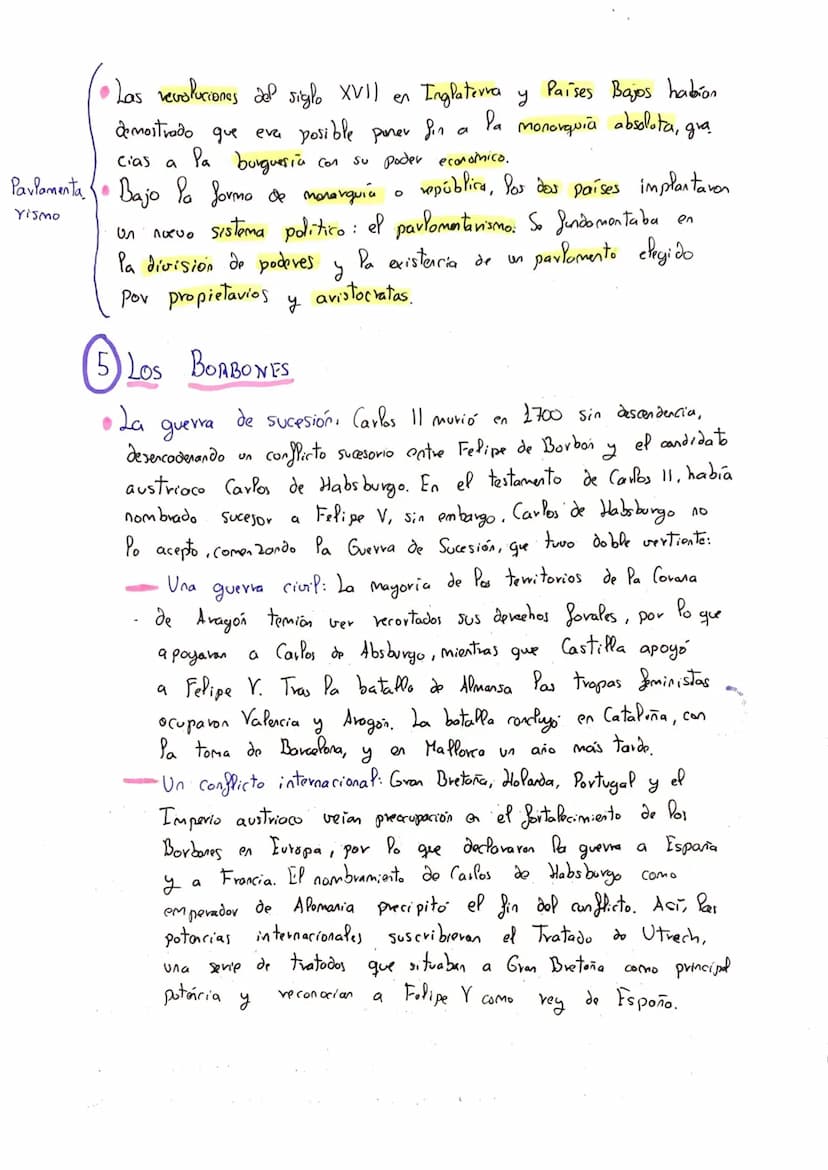 Las revoluciones del siglo XVII en Inglaterra y Países Bajos habían
demostrado que era posible poner fin a la monarquía absoluta, gra
cias a la burguesía con su poder económico.
Parlamenta
rismo
Bajo la forma de monarquía o república, los dos países implantaron
un nuevo sistema político: el parlamentarismo. Se fundamentaba en
la división de poderes y la existencia de un parlamento elegido
por propietarios y aristocratas.
5 Los BORBONES
La guerra de sucesión. Carlos II murió en 1700 sin descendencia,
desencadenando un conflicto sucesorio entre Felipe de Borbón y el candidato
austriaco Carlos de Habsburgo. En el testamento de Carlos II, había
nombrado sucesor a Felipe V, sin embargo, Carlos de Habsburgo no
lo acepto, comenzando la Guerra de Sucesión, que tuvo doble vertiente:
— Una guerra civil: La mayoría de los territorios de la Corona
de Aragón temían ver recortados sus derechos forales, por lo que
apoyaron a Carlos de Absburgo, mientras que Castilla apoyó
a Felipe V. Tras la batalla de Almansa las tropas feministas
ocuparon Valencia y Aragón. La batalla concluyó en Cataluña, con
la toma de Barcelona, y en Mallorca un año más tarde.
— Un conflicto internacional: Gran Bretaña, Holanda, Portugal y el
Imperio austriaco veían preocupación en el fortalecimiento de los
Borbones en Europa, por lo que declararon la guerra a España
y a Francia. El nombramiento de Carlos de Habsburgo como
emperador de Alemania precipitó el fin del conflicto. Así, las
potencias internacionales suscribieron el Tratado de Utrech,
una serie de tratados que situaban a Gran Bretaña como principal
potencia y reconocían a Felipe V como rey de España.